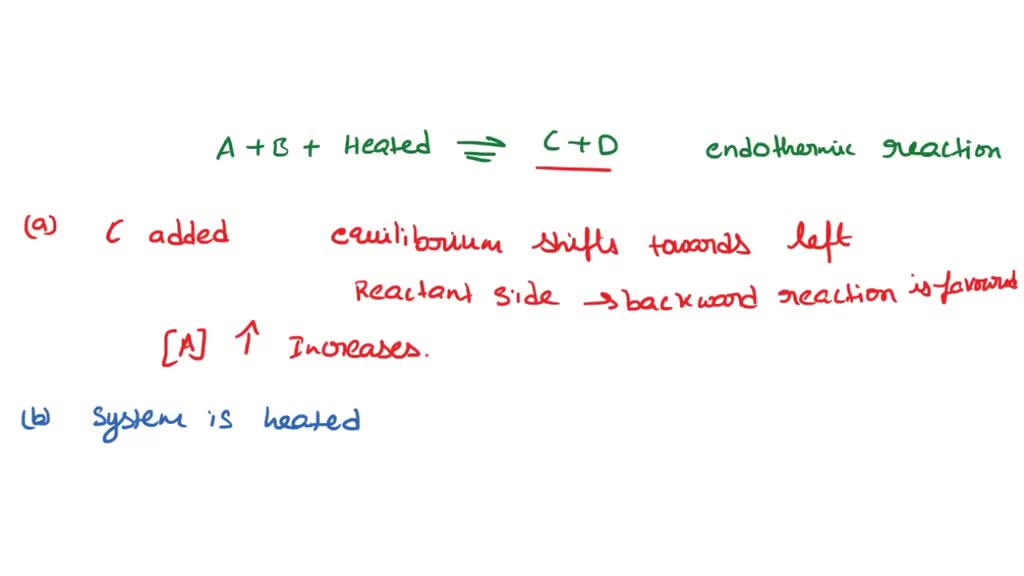 A + B + Heated ⇌ C + D endothermic reaction
(a) C added equiliborium shifts towards left
Reactant side → backward reaction is favoured
[A] ↑ Increases.
(b) System is heated